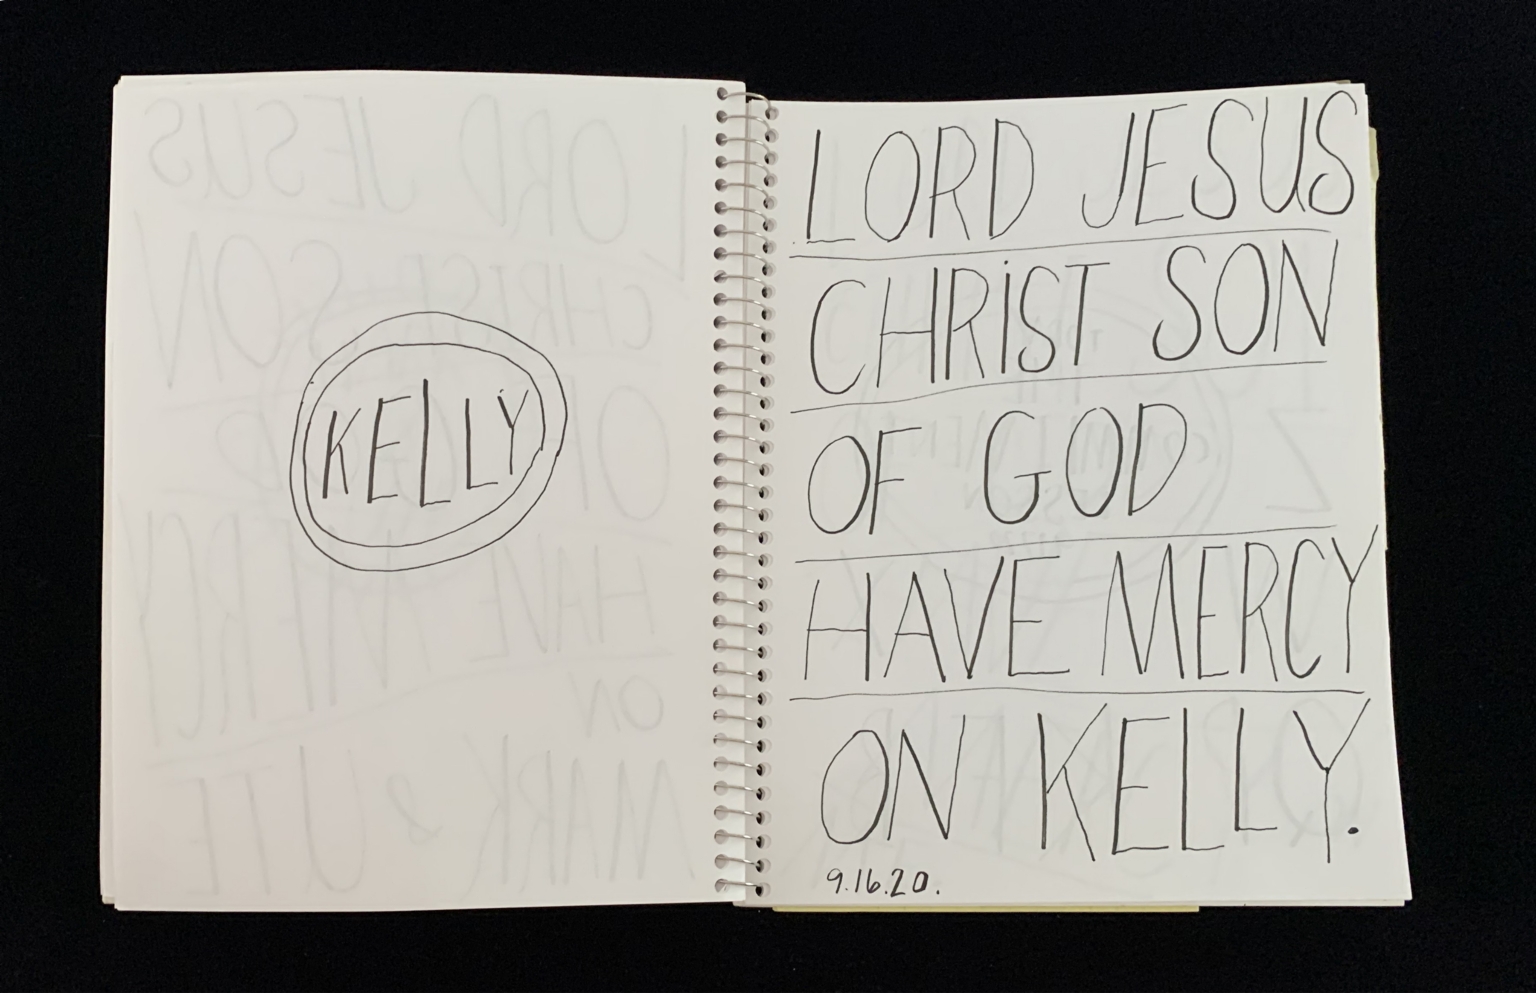 KELLY
LORD JESUS
CHRiST SON
OF GOD
HAVE MERCY
ON KELLY.
9.16.20.